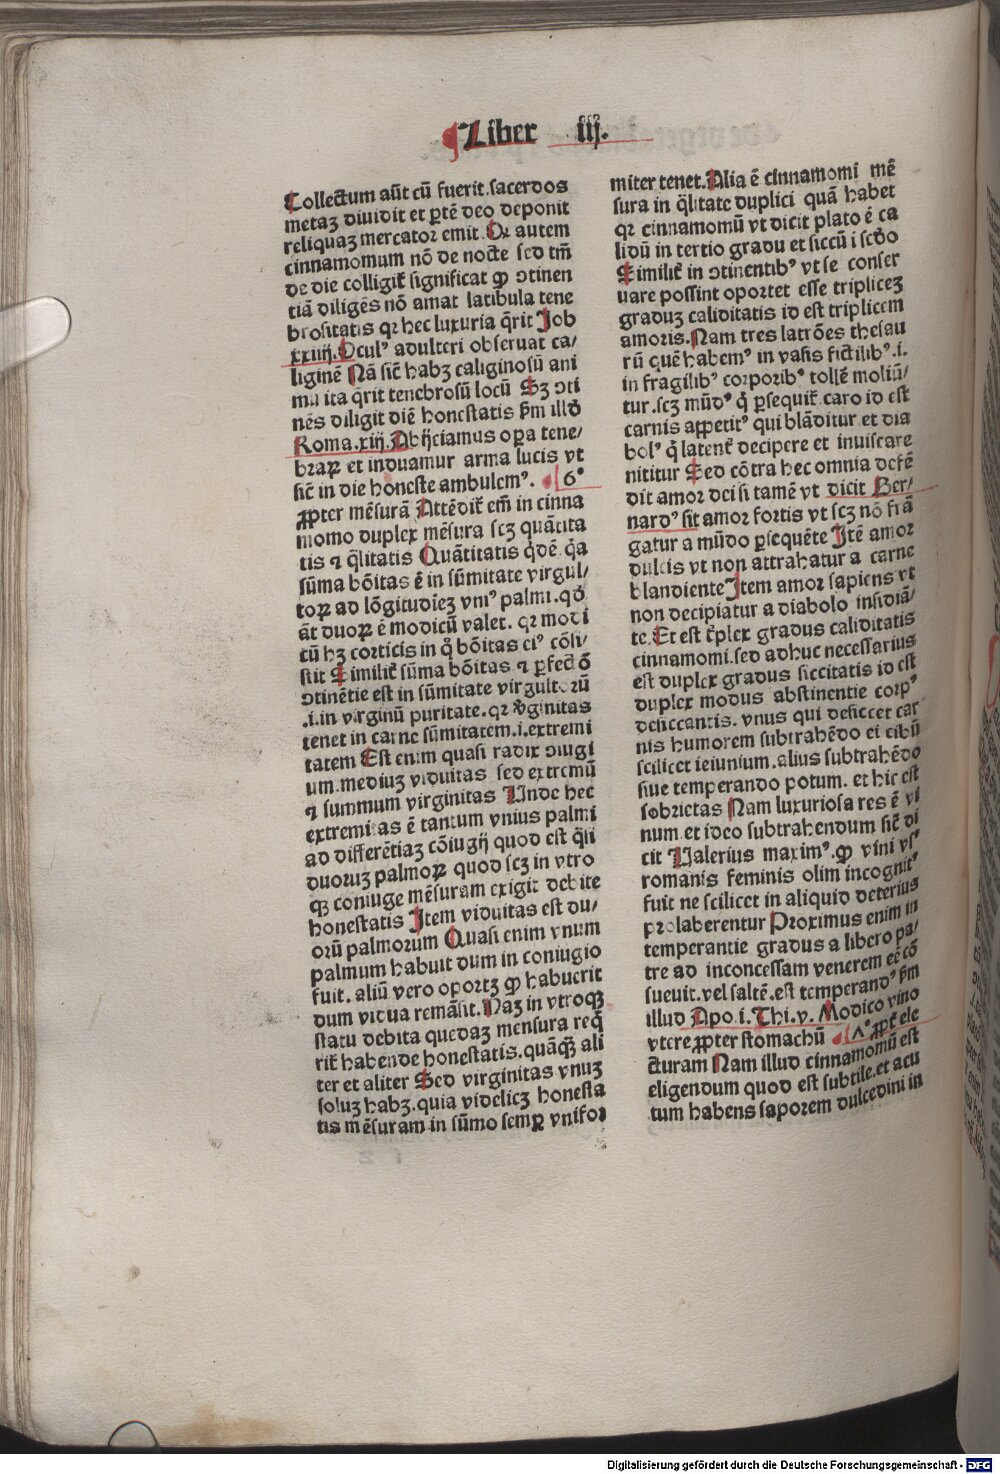 Liber iij.
Collectum aūt cū fuerit.sacerdos
metaꝫ diuidit et ꝑtē deo deponit
reliquaꝫ mercator emit. Qꝛ autem
cinnamomum nō de nocte sed tm̄
de die colligit̉ significat ꝙ ↄtinen
tiā diligēs nō amat latibula tene
brositatis qꝛ hec luxuria q̄rit Job
xxiiij. Oculꝰ adulteri obseruat ca/
liginē Nā sic̄ habꝫ caliginosū ani
ma ita q̄rit tenebrosū locū Sꝫ ↄti
nēs diligit diē honestatis ẜm illđ
Roma.xiij. Abijciamus oꝑa tene/
braꝝ et induamur arma lucis vt
sic̄ in die honeste ambulemꝰ. 6°
ꝓpter mēsurā Attēdit̉ em̄ in cinna
momo duplex mēsura scꝫ quātita
tis ⁊ q̄litatis Quātitatis q̇dē q̇a
sūma bōitas ē in sūmitate virgul/
toꝝ ad lōgitudīeꝫ vniꝰ palmi.qđ
āt duoꝝ ē modicū valet. qꝛ modi
cū hꝫ corticis in q̊ bōitas eiꝰ cōsi/
stit Similit̉ sūma bōitas ⁊ ꝑfectō
ↄtinētie est in sūmitate virgultorū
.i.in virginū puritate.qꝛ v̉ginitas
tenet in carne sūmitatem.i.extremi
tatem Est enim quasi radix ↄiugi
um.mediuꝫ viduitas sed extremū
⁊ summum virginitas Unde hec
extremitas ē tantum vnius palmi
ad differētiaꝫ cōiugij quod est q̄si
duoruꝫ palmoꝝ quod scꝫ in vtro
qꝫ coniuge mēsuram exigit debite
honestatis Item viduitas est du/
orū palmorum Quasi enim vnum
palmum habuit dum in coniugio
fuit. aliū vero oportꝫ ꝙ habuerit
dum vidua remāsit. Naꝫ in vtroqꝫ
statu debita quedaꝫ mensura reꝗ
rit̉ habende honestatis.quāꝗꝫ ali
ter et aliter Sed virginitas vnuꝫ
soluꝫ habꝫ.quia videlicꝫ honesta
tis mēsuram in sūmo semꝑ vnifoꝛ
miter tenet. Alia ē cinnamomi mē
sura in q̄litate duplici quā habet
qꝛ cinnamomū vt dicit plato ē ca
lidū in tertio gradu et siccū i scđo
Similit̉ in ↄtinentibꝰ vt se conser
uare possint oportet esse tripliceꝫ
graduꝫ caliditatis id est triplicem
amoris. Nam tres latrōes thesau
rū quē habemꝰ in vasis fictilibꝰ.i.
in fragilibꝰ corporibꝰ tollē̉ moliū/
tur.scꝫ mūdꝰ q̇ ꝑsequit̉.caro id est
carnis aꝑpetitꝰ qui blādītur et dia
bolꝰ q̇ latent̉ decipere et inuiscare
nititur Sed cōtra hec omnia defē
dit amor dei si tamē vt dicit Ber/
nardꝰ sit amor fortis vt scꝫ nō frā
gatur a mūdo ꝑsequēte Itē amor
dulcis vt non attrahatur a carne
blandiente Item amor sapiens vt
non decipiatur a diabolo insidiā/
te. Et est t̉plex gradus caliditatis
cinnamomi.sed adhuc necessarius
est duplex gradus siccitatis id est
duplex modus abstinentie corpꝰ
desiccantis. vnus qui desiccet car
nis humorem subtrahēdo ei cibū
scilicet ieiunium.alius subtrahēdo
siue temperando potum. et hic est
sobrietas Nam luxuriosa res ē vi
num.et ideo subtrahendum sic̄ di
cit Valerius maximꝰ.ꝙ vini vsꝰ
romanis feminis olim incognitꝰ
fuit ne scilicet in aliquid deterius
prolaberentur Proximus enim in
temperantie gradus a libero pa/
tre ad inconcessam venerem eē cō
sueuit.vel saltē.est temperandꝰ ẜm
illud Apo.i. Thi.v. Modico vino
vtere ꝓpter stomachū ꝓpt̉ ele
cturam Nam illud cinnamomū est
eligendum quod est subtile.et acu
tum habens saporem dulcedini in
Digitalisierung gefördert durch die Deutsche Forschungsgemeinschaft - DFG